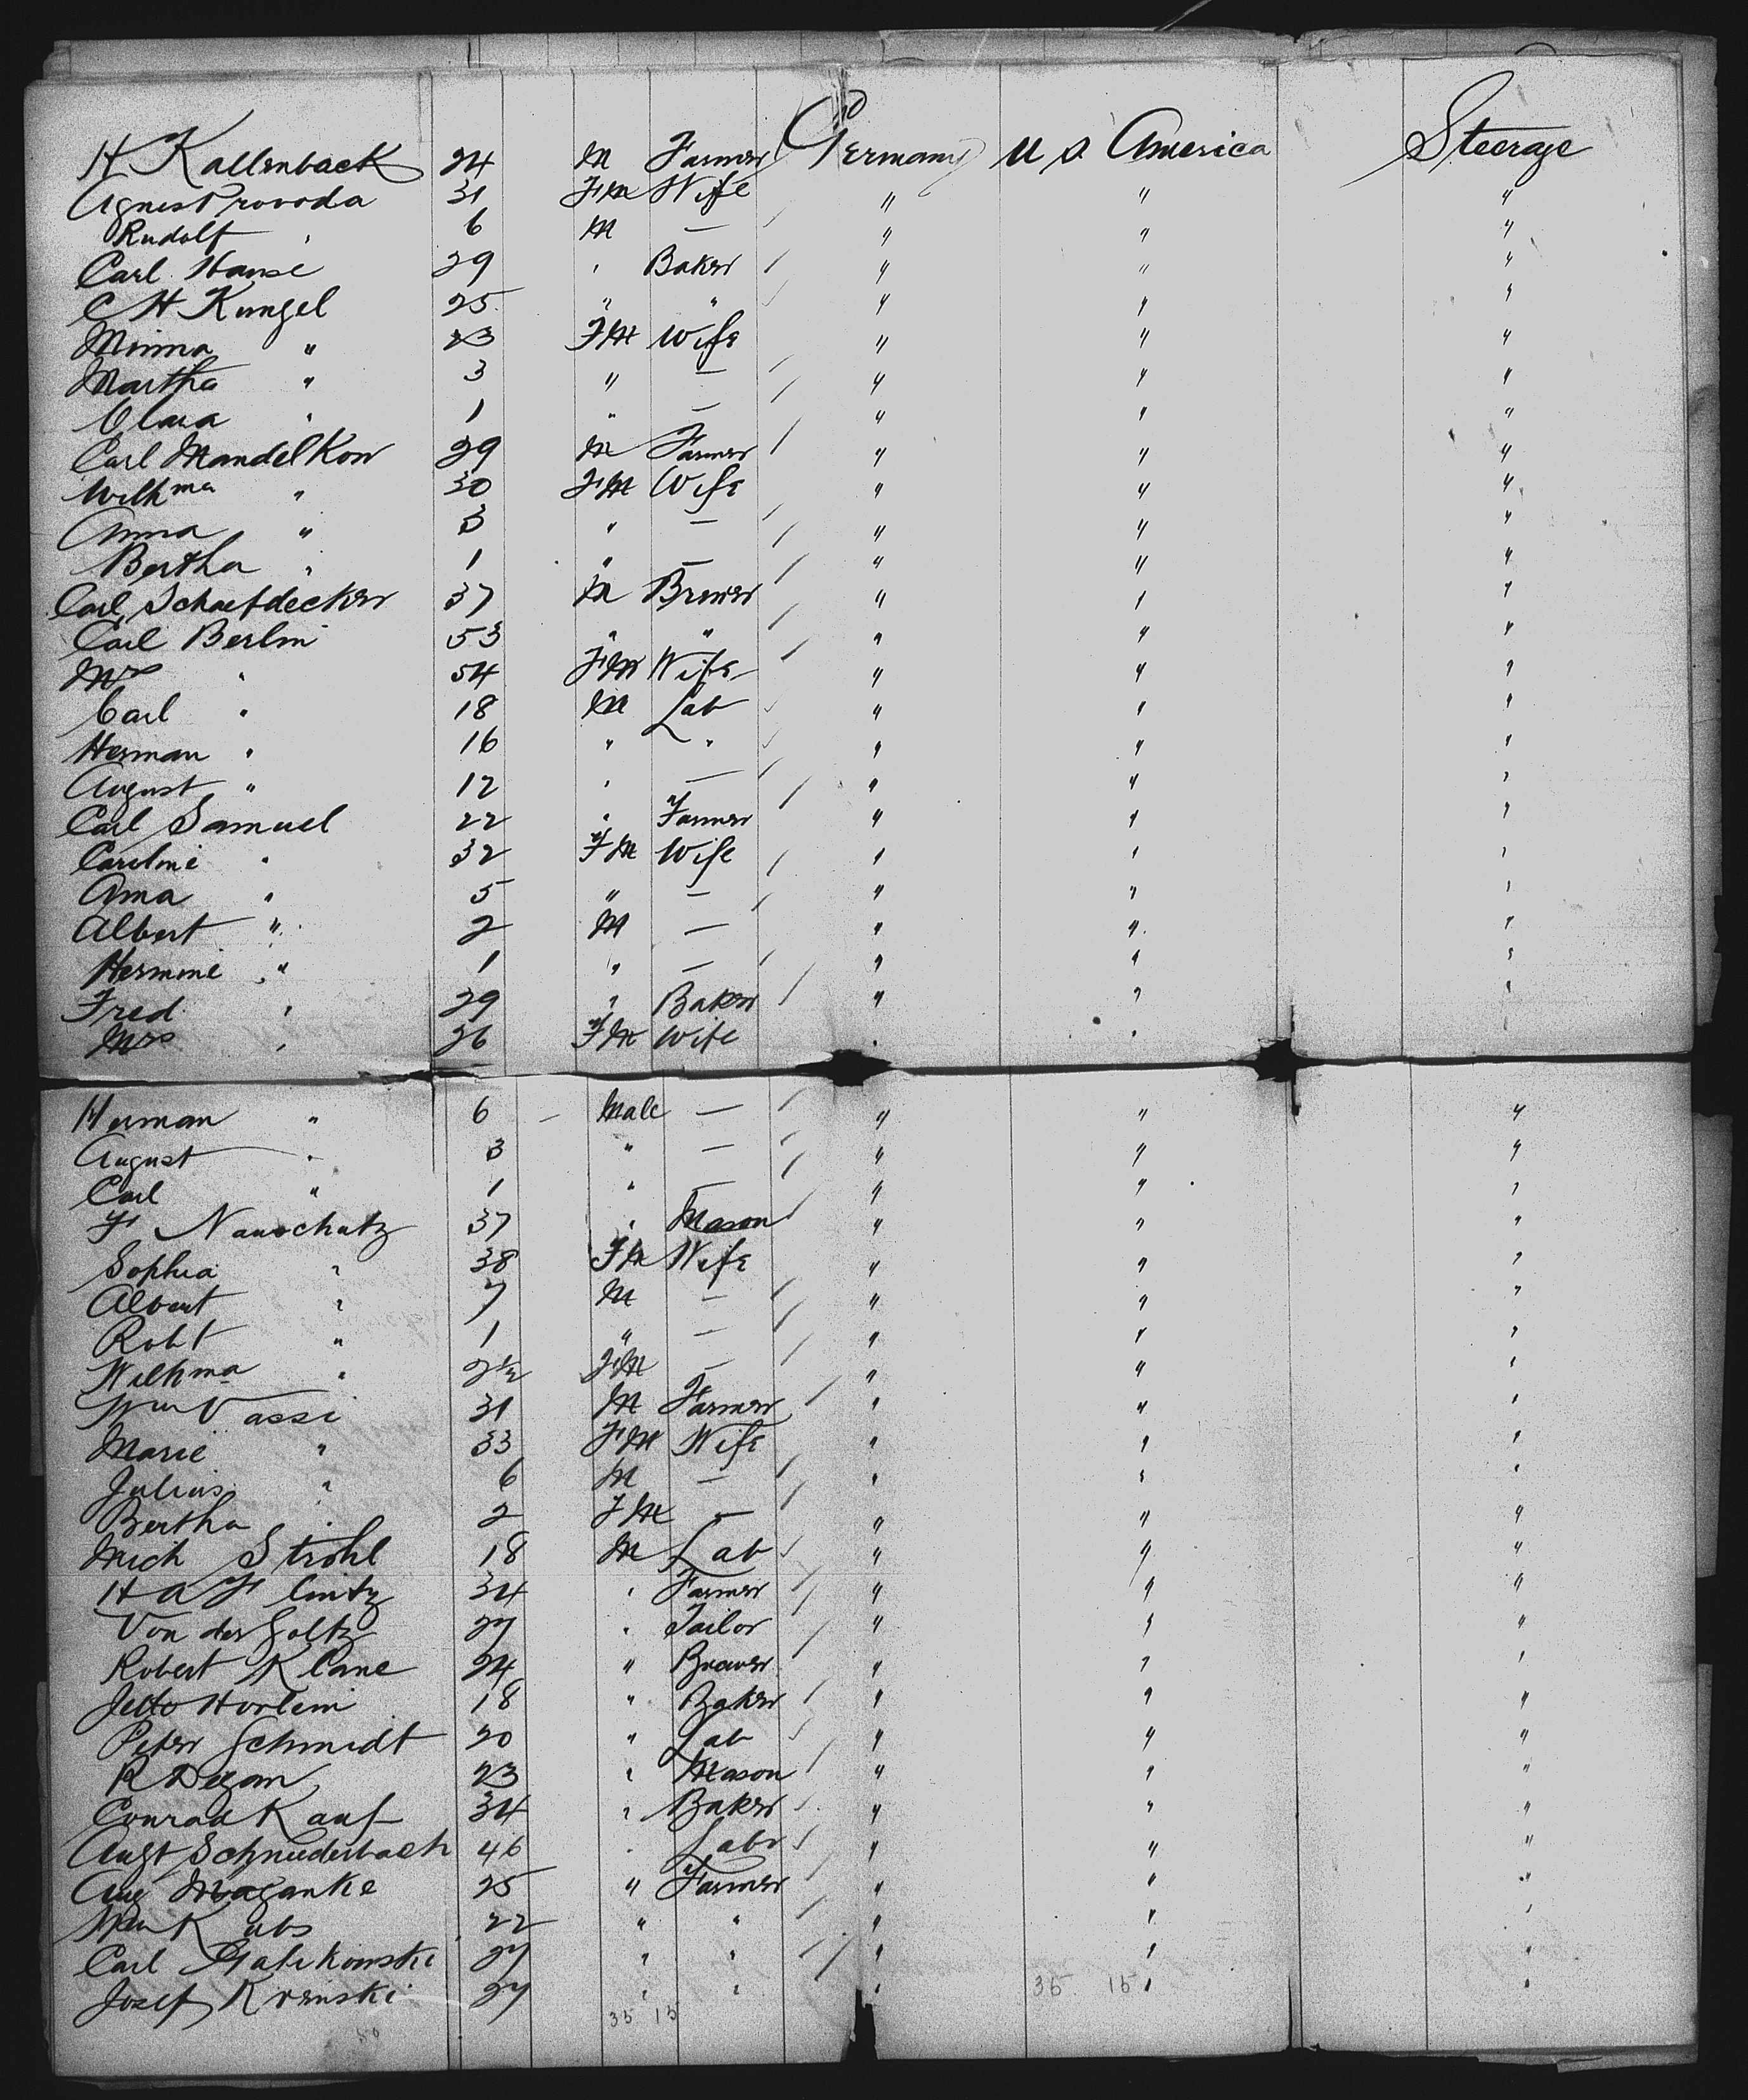 H Kallenback 24 M Farmer Germany U S America Steerage
Agnes Provoda 31 FM Wife " " "
Rudolf " 6 M — " " "
Carl Hanse 29 " Baker " " "
C H Kungel 25 " " " " "
Minna " 23 FM Wife " " "
Martha " 3 " — " " "
Clara " 1 " — " " "
Carl Mandelkow 29 M Farmer " " "
Wilhma " 30 FM Wife " " "
Anna " 3 " — " " "
Bertha " 1 " — " " "
Carl Schaefdecker 37 M Brewer " " "
Carl Berlin 53 " " " " "
Mrs " 54 FM Wife " " "
Carl " 18 M Lab " " "
Herman " 16 " " " " "
August " 12 " — " " "
Carl Samuel 22 " Farmer " " "
Caroline " 32 FM Wife " " "
Anna " 5 " — " " "
Albert " 2 M — " " "
Hermine " 1 " — " " "
Fred " 29 " Baker " " "
Mrs " 26 FM Wife " " "
Herman " 6 — Male — " " "
August " 3 " — " " "
Carl " 1 " — " " "
F Nauschatz 37 " Mason " " "
Sophia " 38 FM Wife " " "
Albert " 7 M — " " "
Robt " 1 " — " " "
Wilhma " 2½ FM — " " "
Wm Vassi 31 M Farmer " " "
Marie " 33 FM Wife " " "
Julius " 6 M — " " "
Bertha " 2 FM — " " "
Mich Strohl 18 M Lab " " "
H A F Lintz 34 " Farmer " " "
Von der Goltz 27 " Tailor " " "
Robert Klane 24 " Brewer " " "
Horlein 18 " Baker " " "
Peter Schmidt 20 " Lab " " "
R Degan 23 " Mason " " "
Conrad Kauf 34 " Baker " " "
Augt Schneiderbach 46 " Labr " " "
Aug Maganke 25 " Farmer " " "
Wm Kubs 22 " " " " "
Carl 27 " " " " "
Josef Krenski 27 " " " " "
35 15 35 15
50